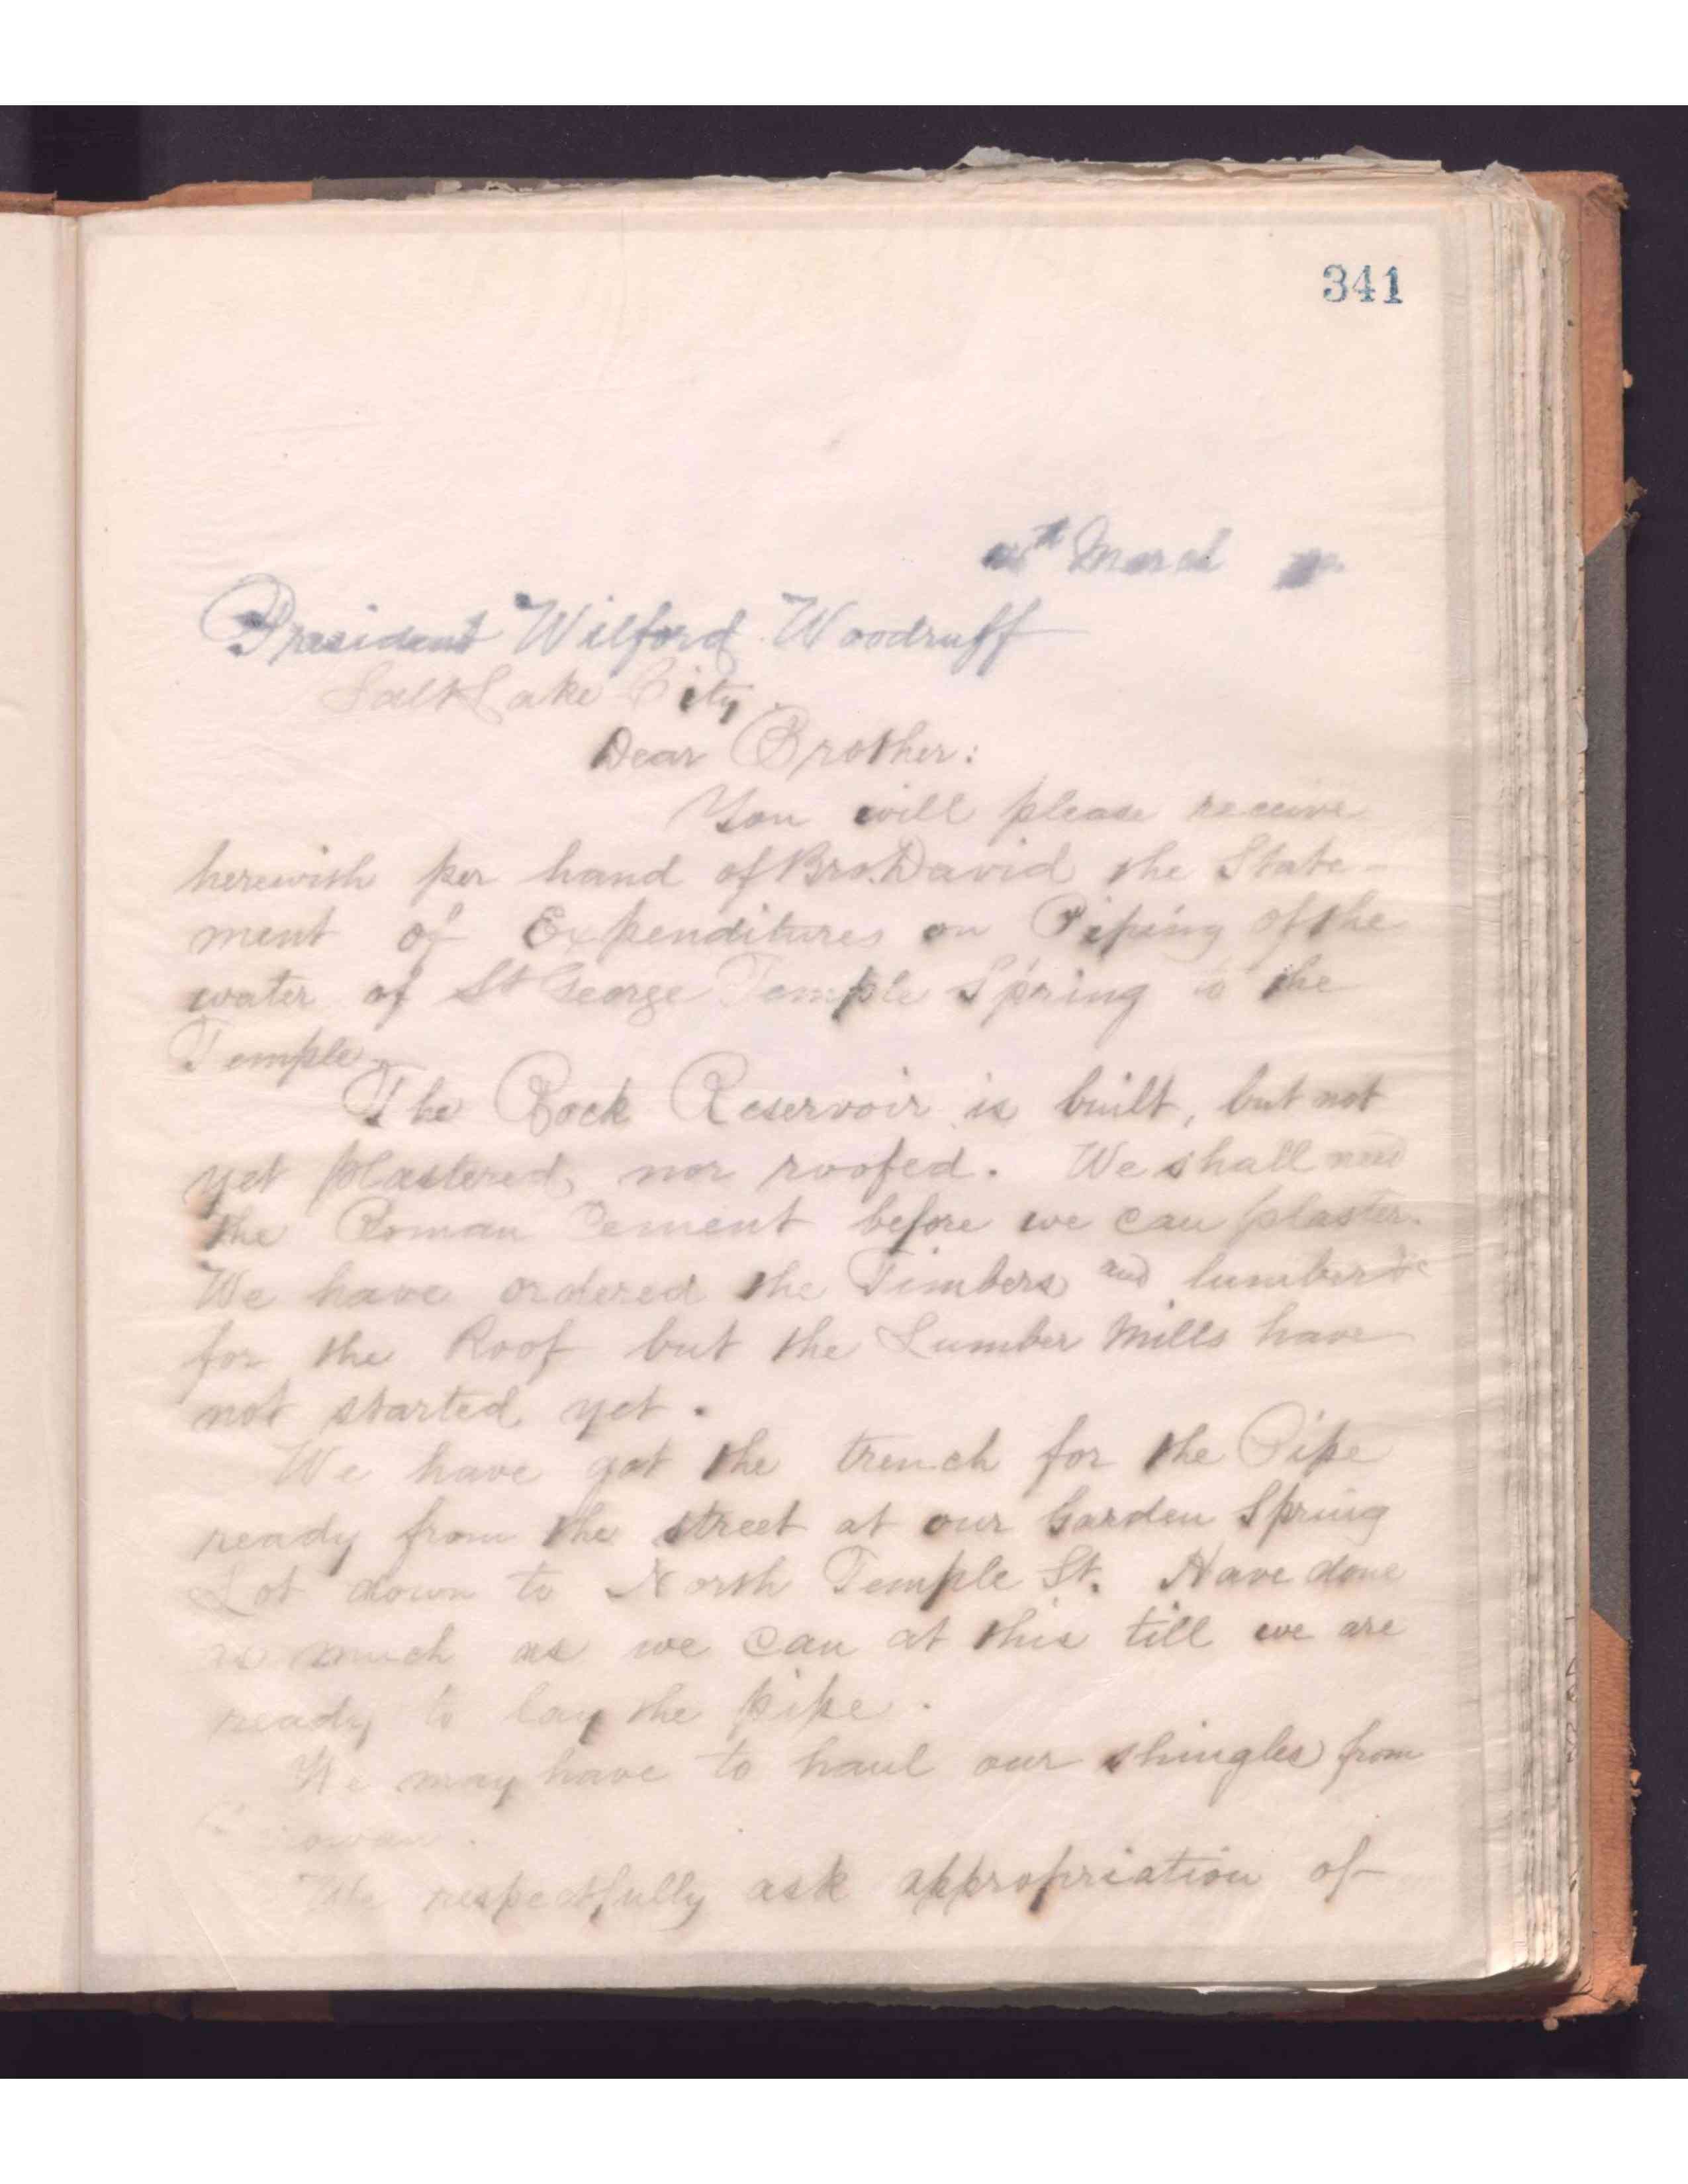 341
March
President Wilford Woodruff
Salt Lake City.
Dear Brother:
You will please receive
herewith per hand of Bro. David the State-
ment of Expenditures on Piping of the
water of St George Temple Spring to the
Temple.
The Rock Reservoir is built, but not
yet plastered, nor roofed. We shall need
the Roman Cement before we can plaster.
We have ordered the Timbers and lumber &c
for the Roof but the Lumber Mills have
not started yet.
We have got the trench for the Pipe
ready from the street at our Garden Spring
Lot down to North Temple St. Have done
as much as we can at this till we are
ready to lay the pipe.
We may have to haul our shingles from
We respectfully ask appropriation of